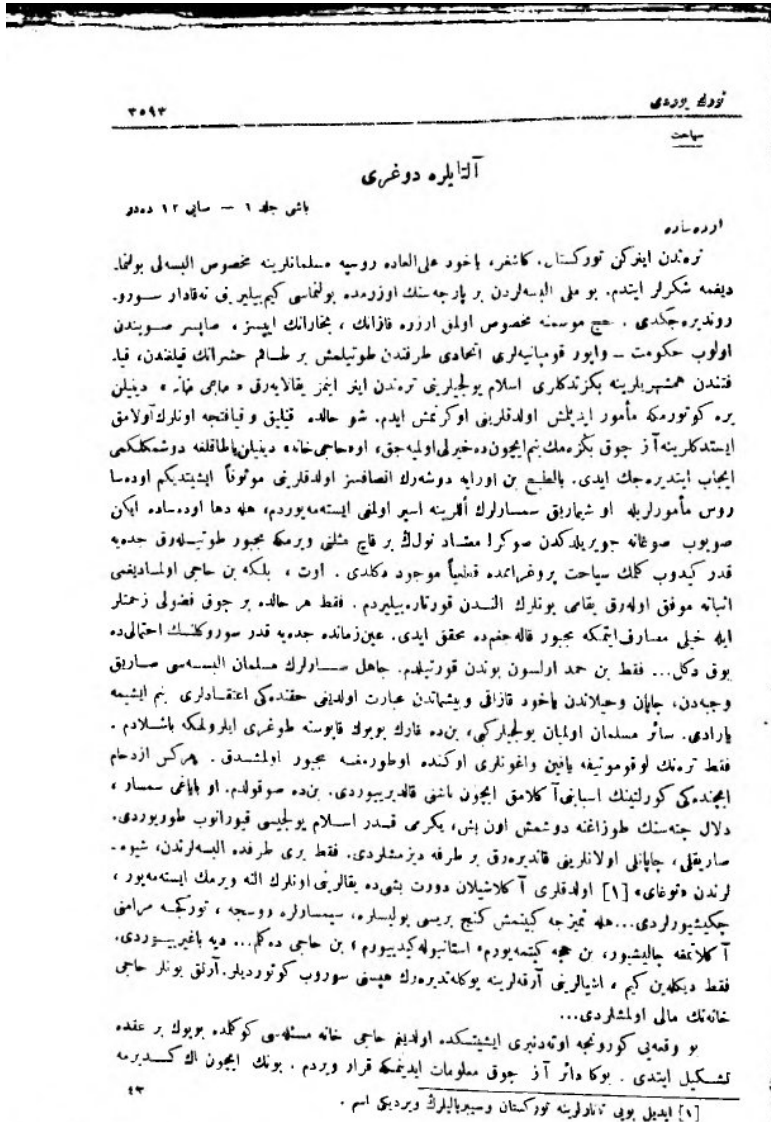 تورك يوردى
٣٥٩٣
سياحت
آلتايلره دوغرى
باشى جلد ١ — صايى ١٢ ده‌در
اوده‌ساده
تره‌ندن اينركن توركستان، كاشغر، ياخود على العاده روسيه مسلمانلرينه مخصوص البسه‌لى بولنما-
ديغمه شكرلر ايتدم. بو ملى البسه‌لردن بر پارچه‌سنك اوزرمده بولنماسى كيم بيلير بنى نه‌قادار سورو-
رونديره‌جكدى. حج موسمنه مخصوص اولمق اوزره قازانك، بخارانك ايپسز، صاپسز صويندن
اولوب حكومت – واپور قومپانيه‌لرى اتحادى طرفندن طوتيلمش بر طاقم حشراتك قيلغندن، قيا-
فتندن همشهريلرينه بكزتدكلرى اسلام يولجيلرينى تره‌ندن اينر اينمز يقالايه‌رق « حاجى خانه » دينيلن
يره كوتورمكه مأمور ايديلمش اولدقلرينى اوكرنمش ايدم. شو حالده قيليق و قيافتجه اونلرك آولامق
ايستدكلرينه آز چوق بكزه‌مك بنم ايچون ده خيرلى اوليه‌جق، او «حاجى خانه» دينيلن باطاقلغه دوشمكلكمى
ايجاب ايتديره‌جك ايدى. بالطبع بن اورايه دوشه‌رك انصافسز اولدقلرينى موثوقاً ايشيتديكم اوده‌سا
روس مأمورلريله او شيماريق سمسارلرك اللرينه اسير اولمغى ايسته‌مه‌يوردم، هله دها اوده‌ساده ايكن
صويوب صوغانه چويريلدكدن صوكرا معتاد نولك بر قاچ مثلنى ويرمكه مجبور طوتيله‌رق جده‌يه
قدر كيدوب كلمك سياحت پروغرامده قطعياً موجود دكلدى. اوت، بلكه بن حاجى اولماديغمى
اثباته موفق اوله‌رق يقامى بونلرك الندن قورتاره‌بيليردم. فقط هر حالده بر چوق فضولى زحمتلر
ايله خيلى مصارف ايتمكه مجبور قاله‌جغم ده محقق ايدى. عين زمانده جده‌يه قدر سوروكلنمك احتمالى ده
يوق دكل... فقط بن حمد اولسون بوندن قورتيلدم. جاهل سمسارلرك مسلمان البسه‌سى صاريق
وجبه‌دن، چاپان وحيلاندن ياخود قازاقى وبيشماندن عبارت اولديغى حقنده‌كى اعتقادلرى بنم ايشيمه
يارادى. سائر مسلمان اولميان يولجيلر كبى، بن ده غارك بويوك قاپوسنه طوغرى ايلرولمكه باشلادم.
فقط تره‌نك لوقوموتيفه ياقين واغونلرى اوكنده اوطورمغه مجبور اولمشدق. هركس ازدحام
ايچنده‌كى كورلتينك اسبابنى آكلامق ايچون باشنى قالديرييوردى. بن ده صوقولدم. او باياغى سمسار،
دلال جته‌سنك طوزاغنه دوشمش اون بش، يكرمى قدر اسلام يولجيسى قيورانوب طورييوردى.
صاريقلى، چاپانلى اولانلرينى قانديره‌رق بر طرفه ديزمشلردى. فقط برى طرفده البسه‌لرندن، شيوه-
لرندن «نوغاى» [١] اولدقلرى آكلاشيلان دورت بشى ده يقالرينى اونلرك النه ويرمك ايسته‌مه‌يور،
چكيشيورلردى... هله تميزجه كيينمش كنج بريسى پوليسلره، سمسارلره روسجه، توركجه مرامنى
آكلاتمغه چاليشيور، بن حجه كيتمه‌يورم، استانبوله كيدييورم، بن حاجى ده‌كلم... ديه باغيرييوردى.
فقط ديكله‌ين كيم، اشيالرينى آرقه‌لرينه يوكله‌تديره‌رك هپسنى سوروب كوتورديلر. آرتق بونلر حاجى
خانه‌نك مالى اولمشلردى...
بو وقعه‌يى كورونجه اوته‌دنبرى ايشيتمكده اولديغم حاجى خانه مسئله‌سى كوكلمده بويوك بر عقده
تشكيل ايتدى. بوكا دائر آز چوق معلومات ايدينمكه قرار ويردم. بونك ايچون اك كسديرمه
[١] ايديل بويى تاتارلرينه توركستان وسيبرياليلرك ويرديكى اسم.
٤٣